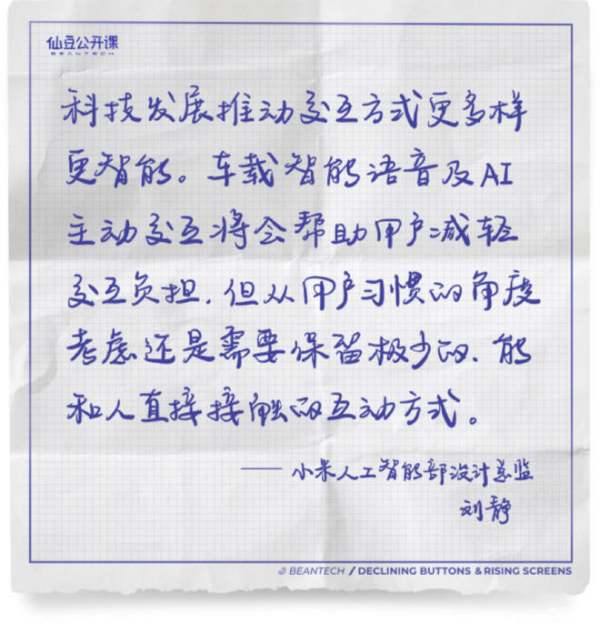 仙豆公开课
科技发展推动交互方式更多样
更智能。车载智能语音及AI
主动交互将会帮助用户减轻
交互负担，但从用户习惯的角度
考虑还是需要保留极少的、能
和人直接接触的互动方式。
——小米人工智能部设计总监
刘静
@ BEANTECH / DECLINING BUTTONS & RISING SCREENS